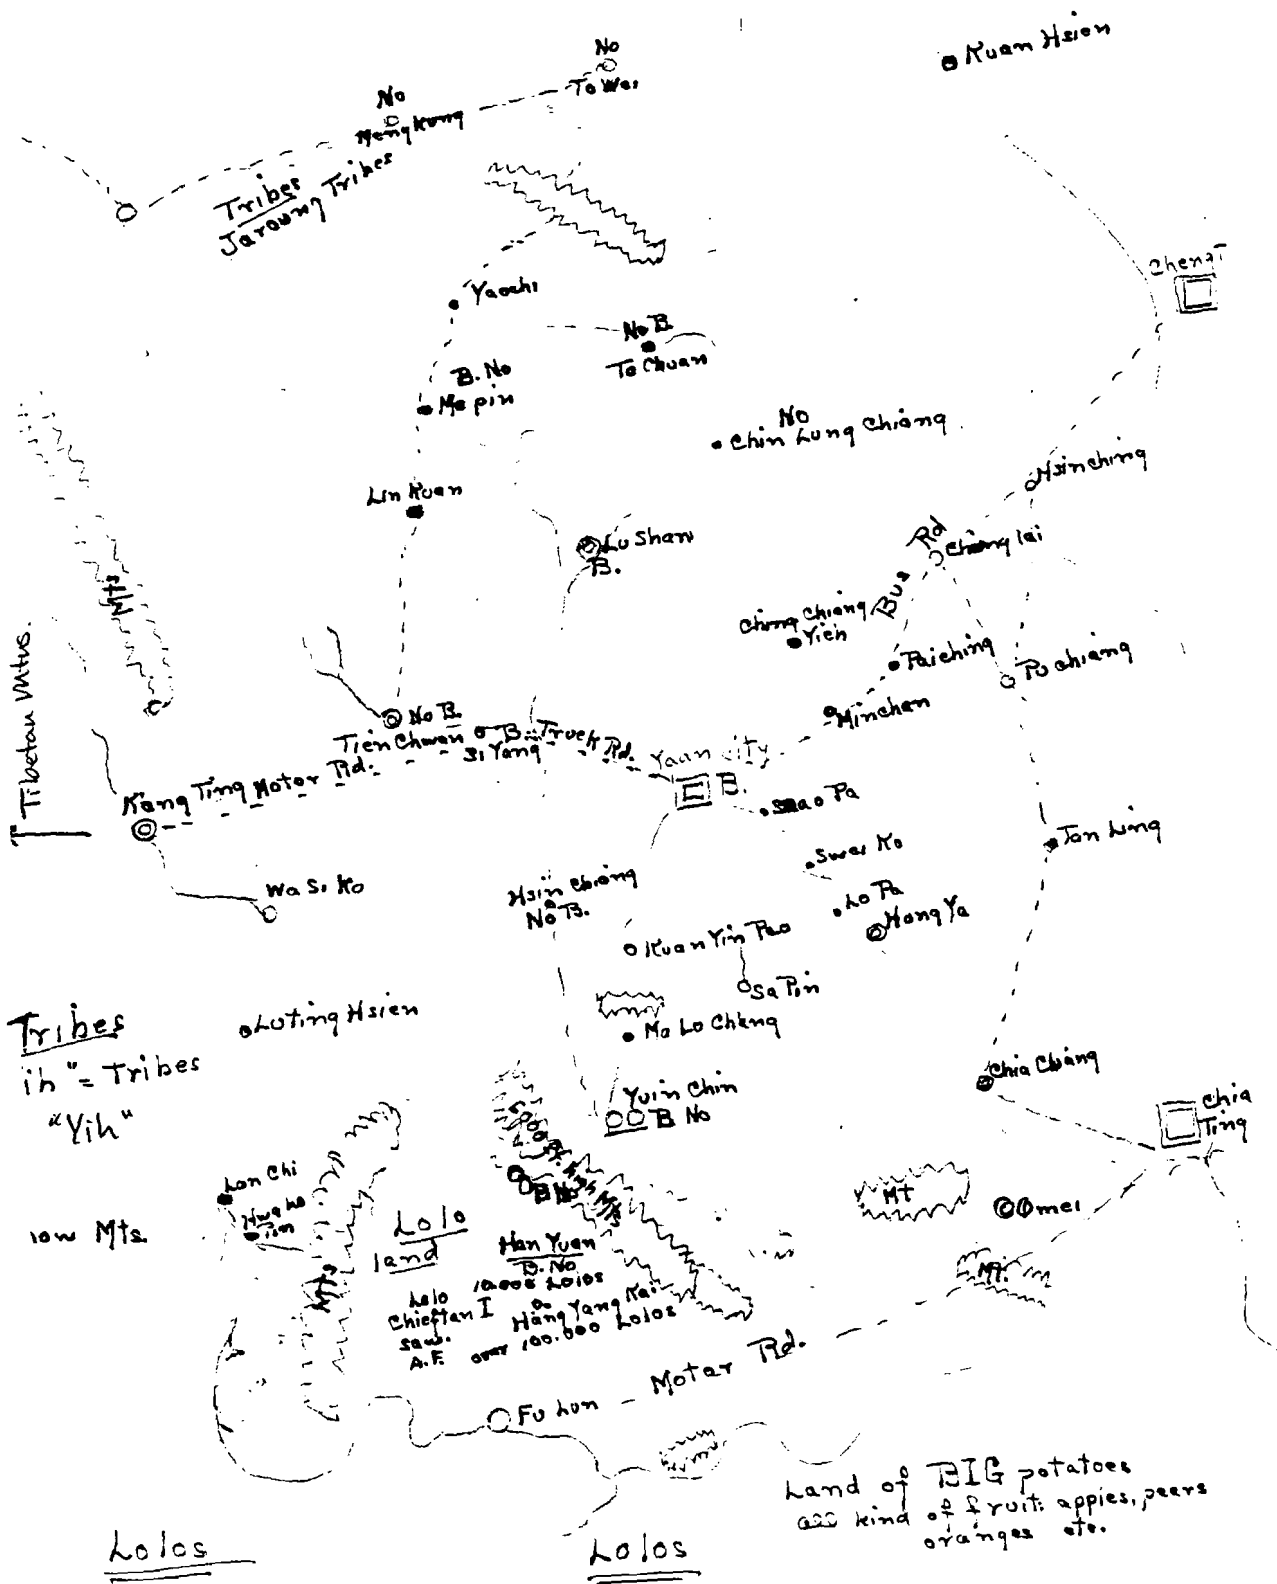 Kuan Hsien
No
To Wei
No
Mengkong
Tribes
Jaroung Tribes
ChengT
Yaochi
No B.
To Chuan
B. No
Mo pin
No
Chin Lung Chiang
Hsinching
Lin Kuan
Lu Shan
B.
Bus Rd
Chiong lai
Ching Chiang
Yieh
Paiching
Pu chiang
Minchan
Mts
Tibetan Mtns.
No B.
Tien Chwan
B.
Si Yang
Truck Rd.
Yaan city
B.
Kang Ting Motor Rd.
Shao Pa
Tan Ling
Swei Ko
Wa Si Ko
Hsin Chiang
No B.
Lo Pa
Hong Ya
Kuan Yin Pao
Sa Pin
Tribes
ih" = Tribes
"Yih"
Luting Hsien
Ma Lo Chang
Chia Chiang
Yuin Chin
B No
Chia
Ting
Lon Chi
Mt
Omei
low Mts.
Mts
B No
Lolo
land
Han Yuan
B. No
10.000 Lolos
Lolo
Chieftan I
saw.
A.F.
Hang Yang Kai
over 100.000 Lolos
Mt.
Fu Lun - Motar Rd.
Land of BIG potatoes
all kind of fruit: appies, peers
oranges etc.
Lolos
Lolos